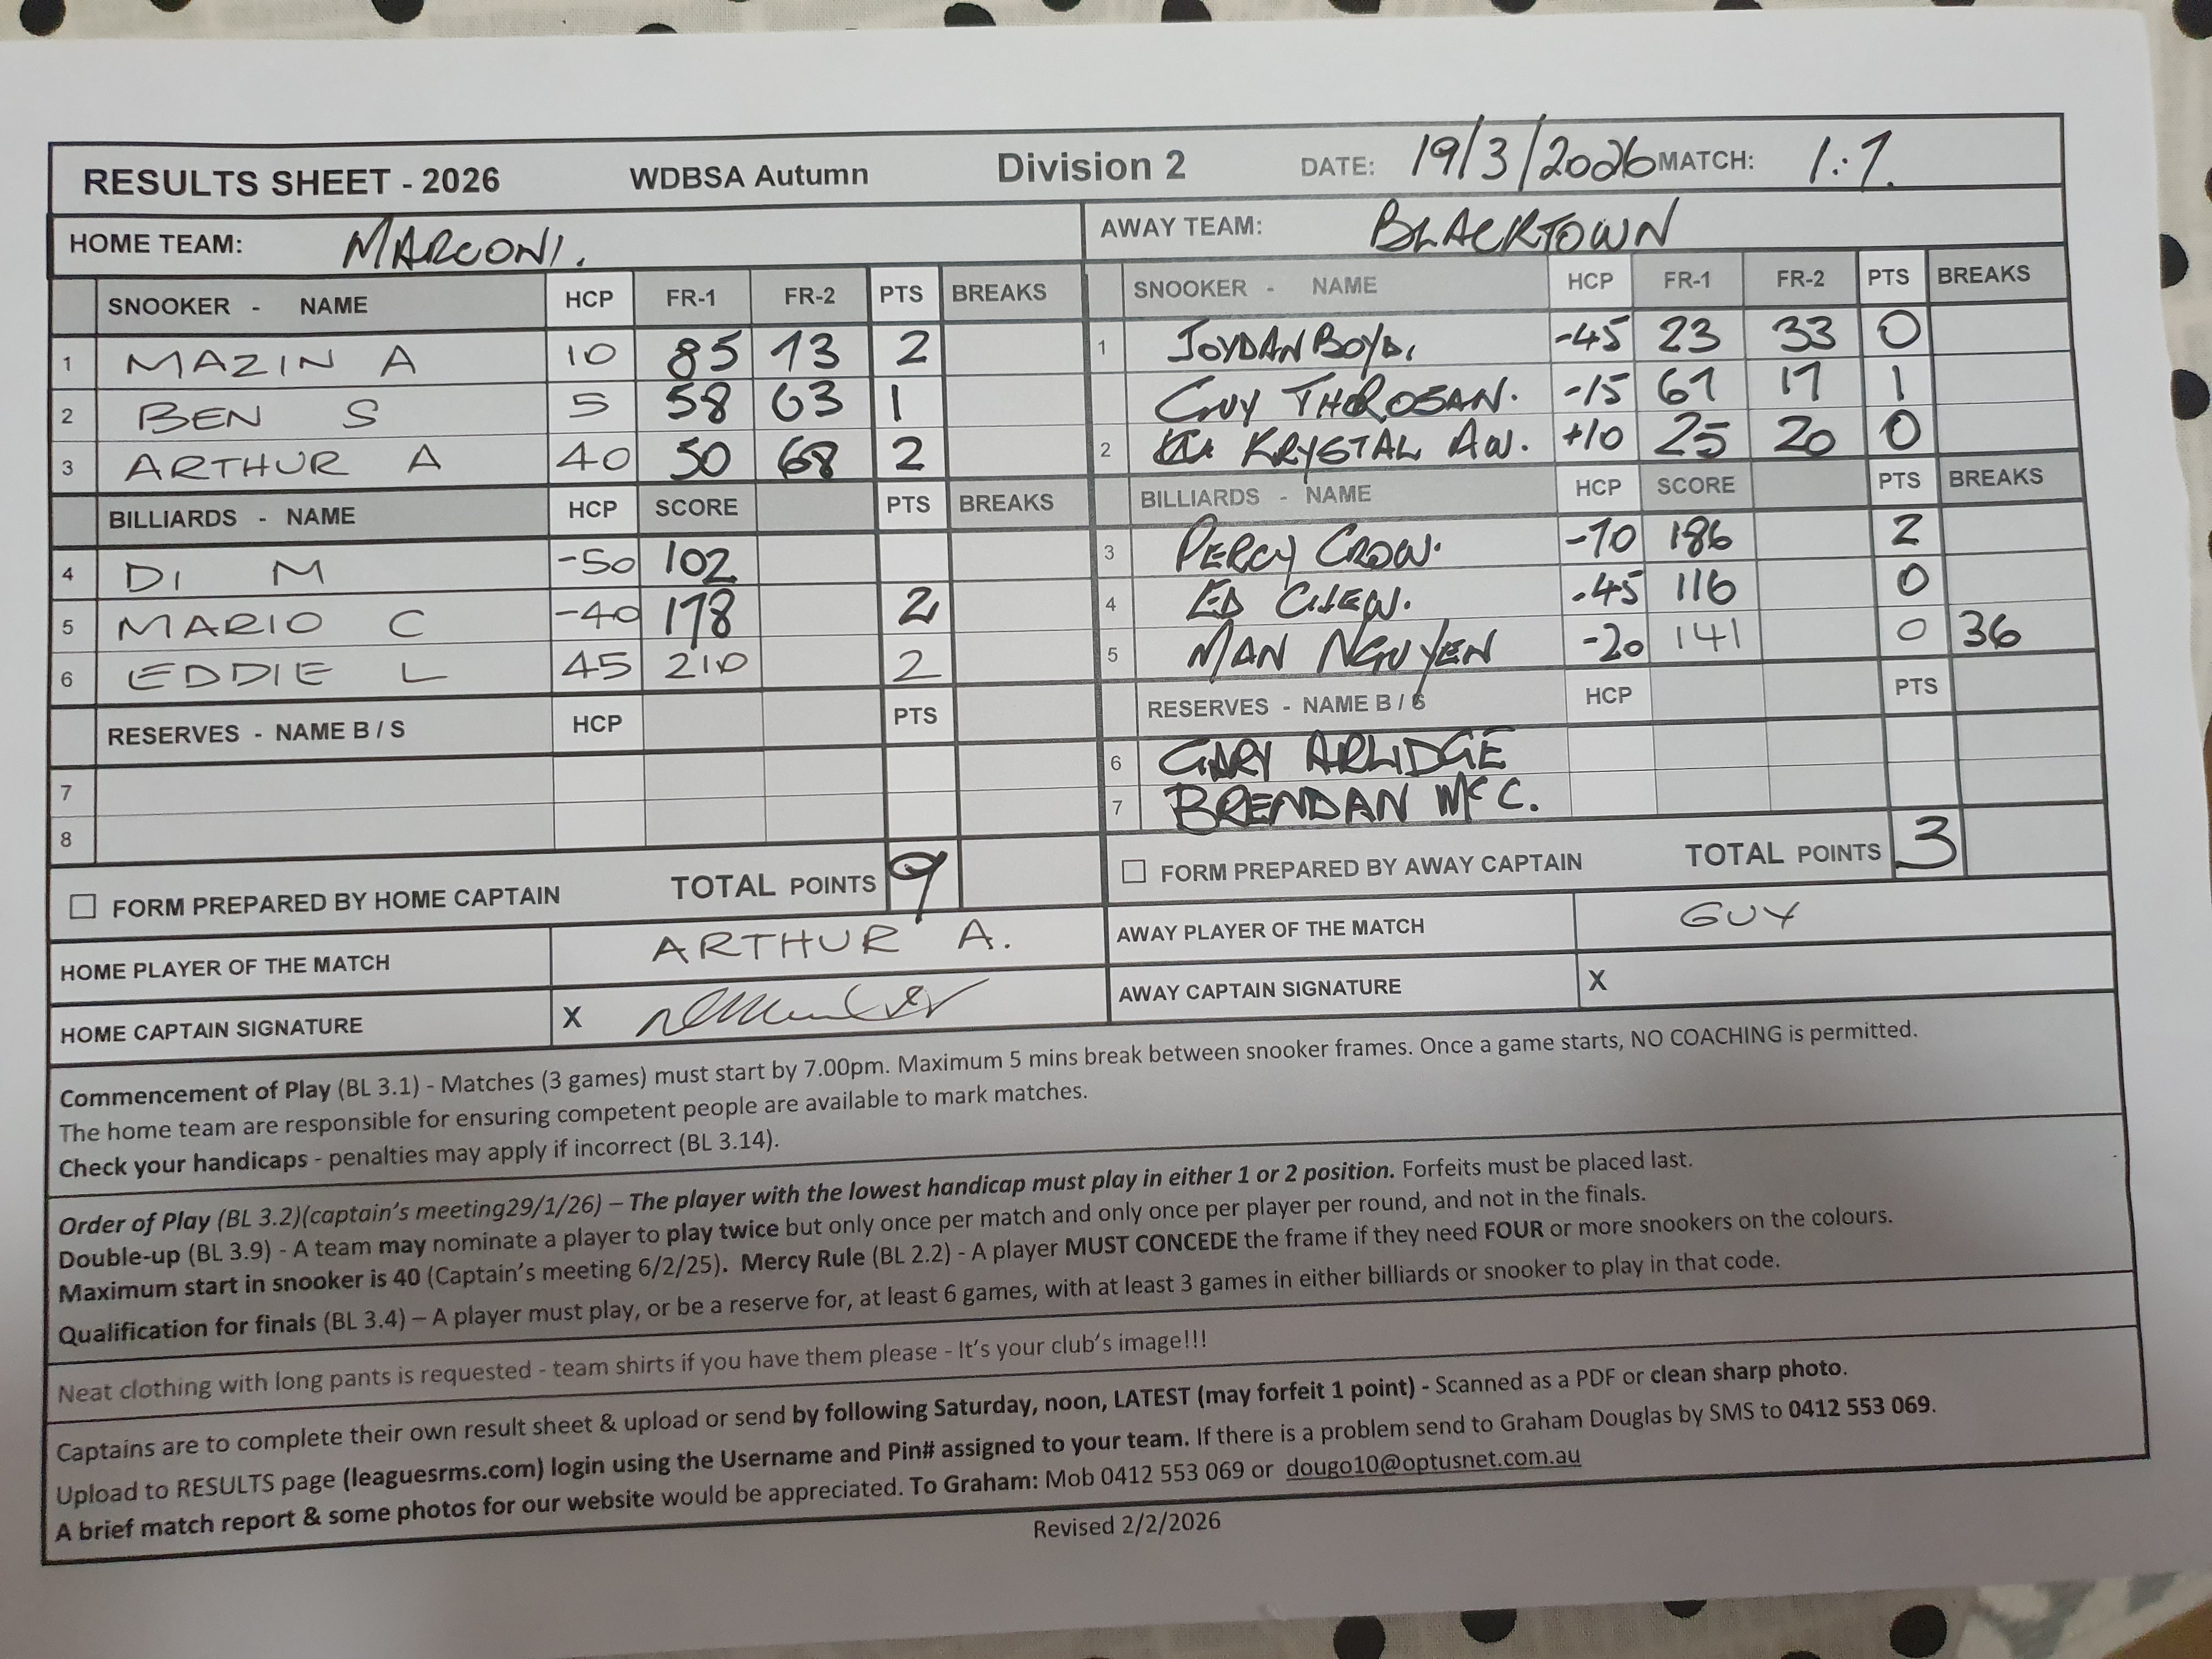 RESULTS SHEET - 2026 WDBSA Autumn Division 2 DATE: 19/3/2026 MATCH: 1:7.
HOME TEAM: MARCONI. AWAY TEAM: BLACKTOWN
SNOOKER - NAME HCP FR-1 FR-2 PTS BREAKS SNOOKER - NAME HCP FR-1 FR-2 PTS BREAKS
1 MAZIN A 10 85 73 2 1 JOYDAN BOYD. -45 23 33 0
2 BEN S 5 58 63 1 GUY THOROSAN. -15 67 17 1
3 ARTHUR A 40 50 68 2 2 KRYSTAL AW. +10 25 20 0
BILLIARDS - NAME HCP SCORE PTS BREAKS BILLIARDS - NAME HCP SCORE PTS BREAKS
4 DI M -50 102 3 PERCY CROW. -70 186 2
5 MARIO C -40 178 2 4 ED CHEW. -45 116 0
6 EDDIE L 45 210 2 5 MAN NGUYEN -20 141 0 36
RESERVES - NAME B / S HCP PTS RESERVES - NAME B / S HCP PTS
7 6 GARY ARLIDGE
8 7 BRENDAN McC.
FORM PREPARED BY HOME CAPTAIN TOTAL POINTS 9 FORM PREPARED BY AWAY CAPTAIN TOTAL POINTS 3
HOME PLAYER OF THE MATCH ARTHUR A. AWAY PLAYER OF THE MATCH GUY
HOME CAPTAIN SIGNATURE X AWAY CAPTAIN SIGNATURE X
Commencement of Play (BL 3.1) - Matches (3 games) must start by 7.00pm. Maximum 5 mins break between snooker frames. Once a game starts, NO COACHING is permitted.
The home team are responsible for ensuring competent people are available to mark matches.
Check your handicaps - penalties may apply if incorrect (BL 3.14).
Order of Play (BL 3.2)(captain's meeting29/1/26) – The player with the lowest handicap must play in either 1 or 2 position. Forfeits must be placed last.
Double-up (BL 3.9) - A team may nominate a player to play twice but only once per match and only once per player per round, and not in the finals.
Maximum start in snooker is 40 (Captain's meeting 6/2/25). Mercy Rule (BL 2.2) - A player MUST CONCEDE the frame if they need FOUR or more snookers on the colours.
Qualification for finals (BL 3.4) – A player must play, or be a reserve for, at least 6 games, with at least 3 games in either billiards or snooker to play in that code.
Neat clothing with long pants is requested - team shirts if you have them please - It's your club's image!!!
Captains are to complete their own result sheet & upload or send by following Saturday, noon, LATEST (may forfeit 1 point) - Scanned as a PDF or clean sharp photo.
Upload to RESULTS page (leaguesrms.com) login using the Username and Pin# assigned to your team. If there is a problem send to Graham Douglas by SMS to 0412 553 069.
A brief match report & some photos for our website would be appreciated. To Graham: Mob 0412 553 069 or dougo10@optusnet.com.au
Revised 2/2/2026